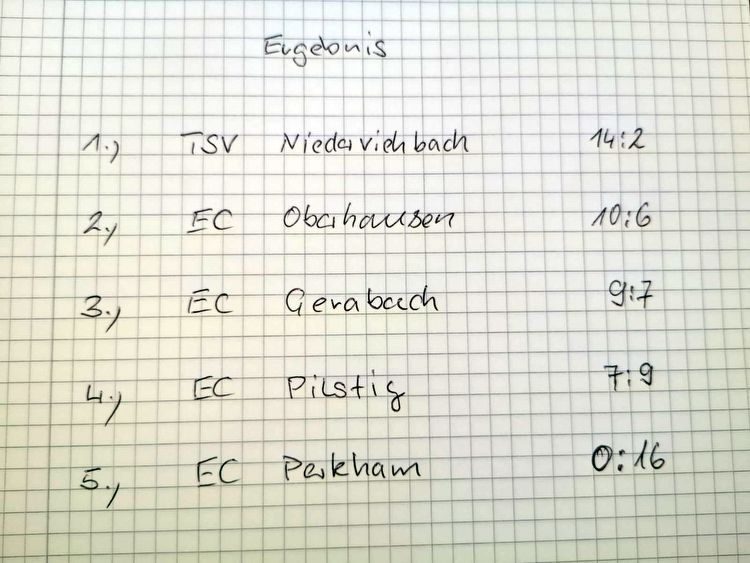 Ergebnis
1.) TSV Niederviehbach 14:2
2.) EC Oberhausen 10:6
3.) EC Gerabach 9:7
4.) EC Pilstig 7:9
5.) EC Perkham 0:16